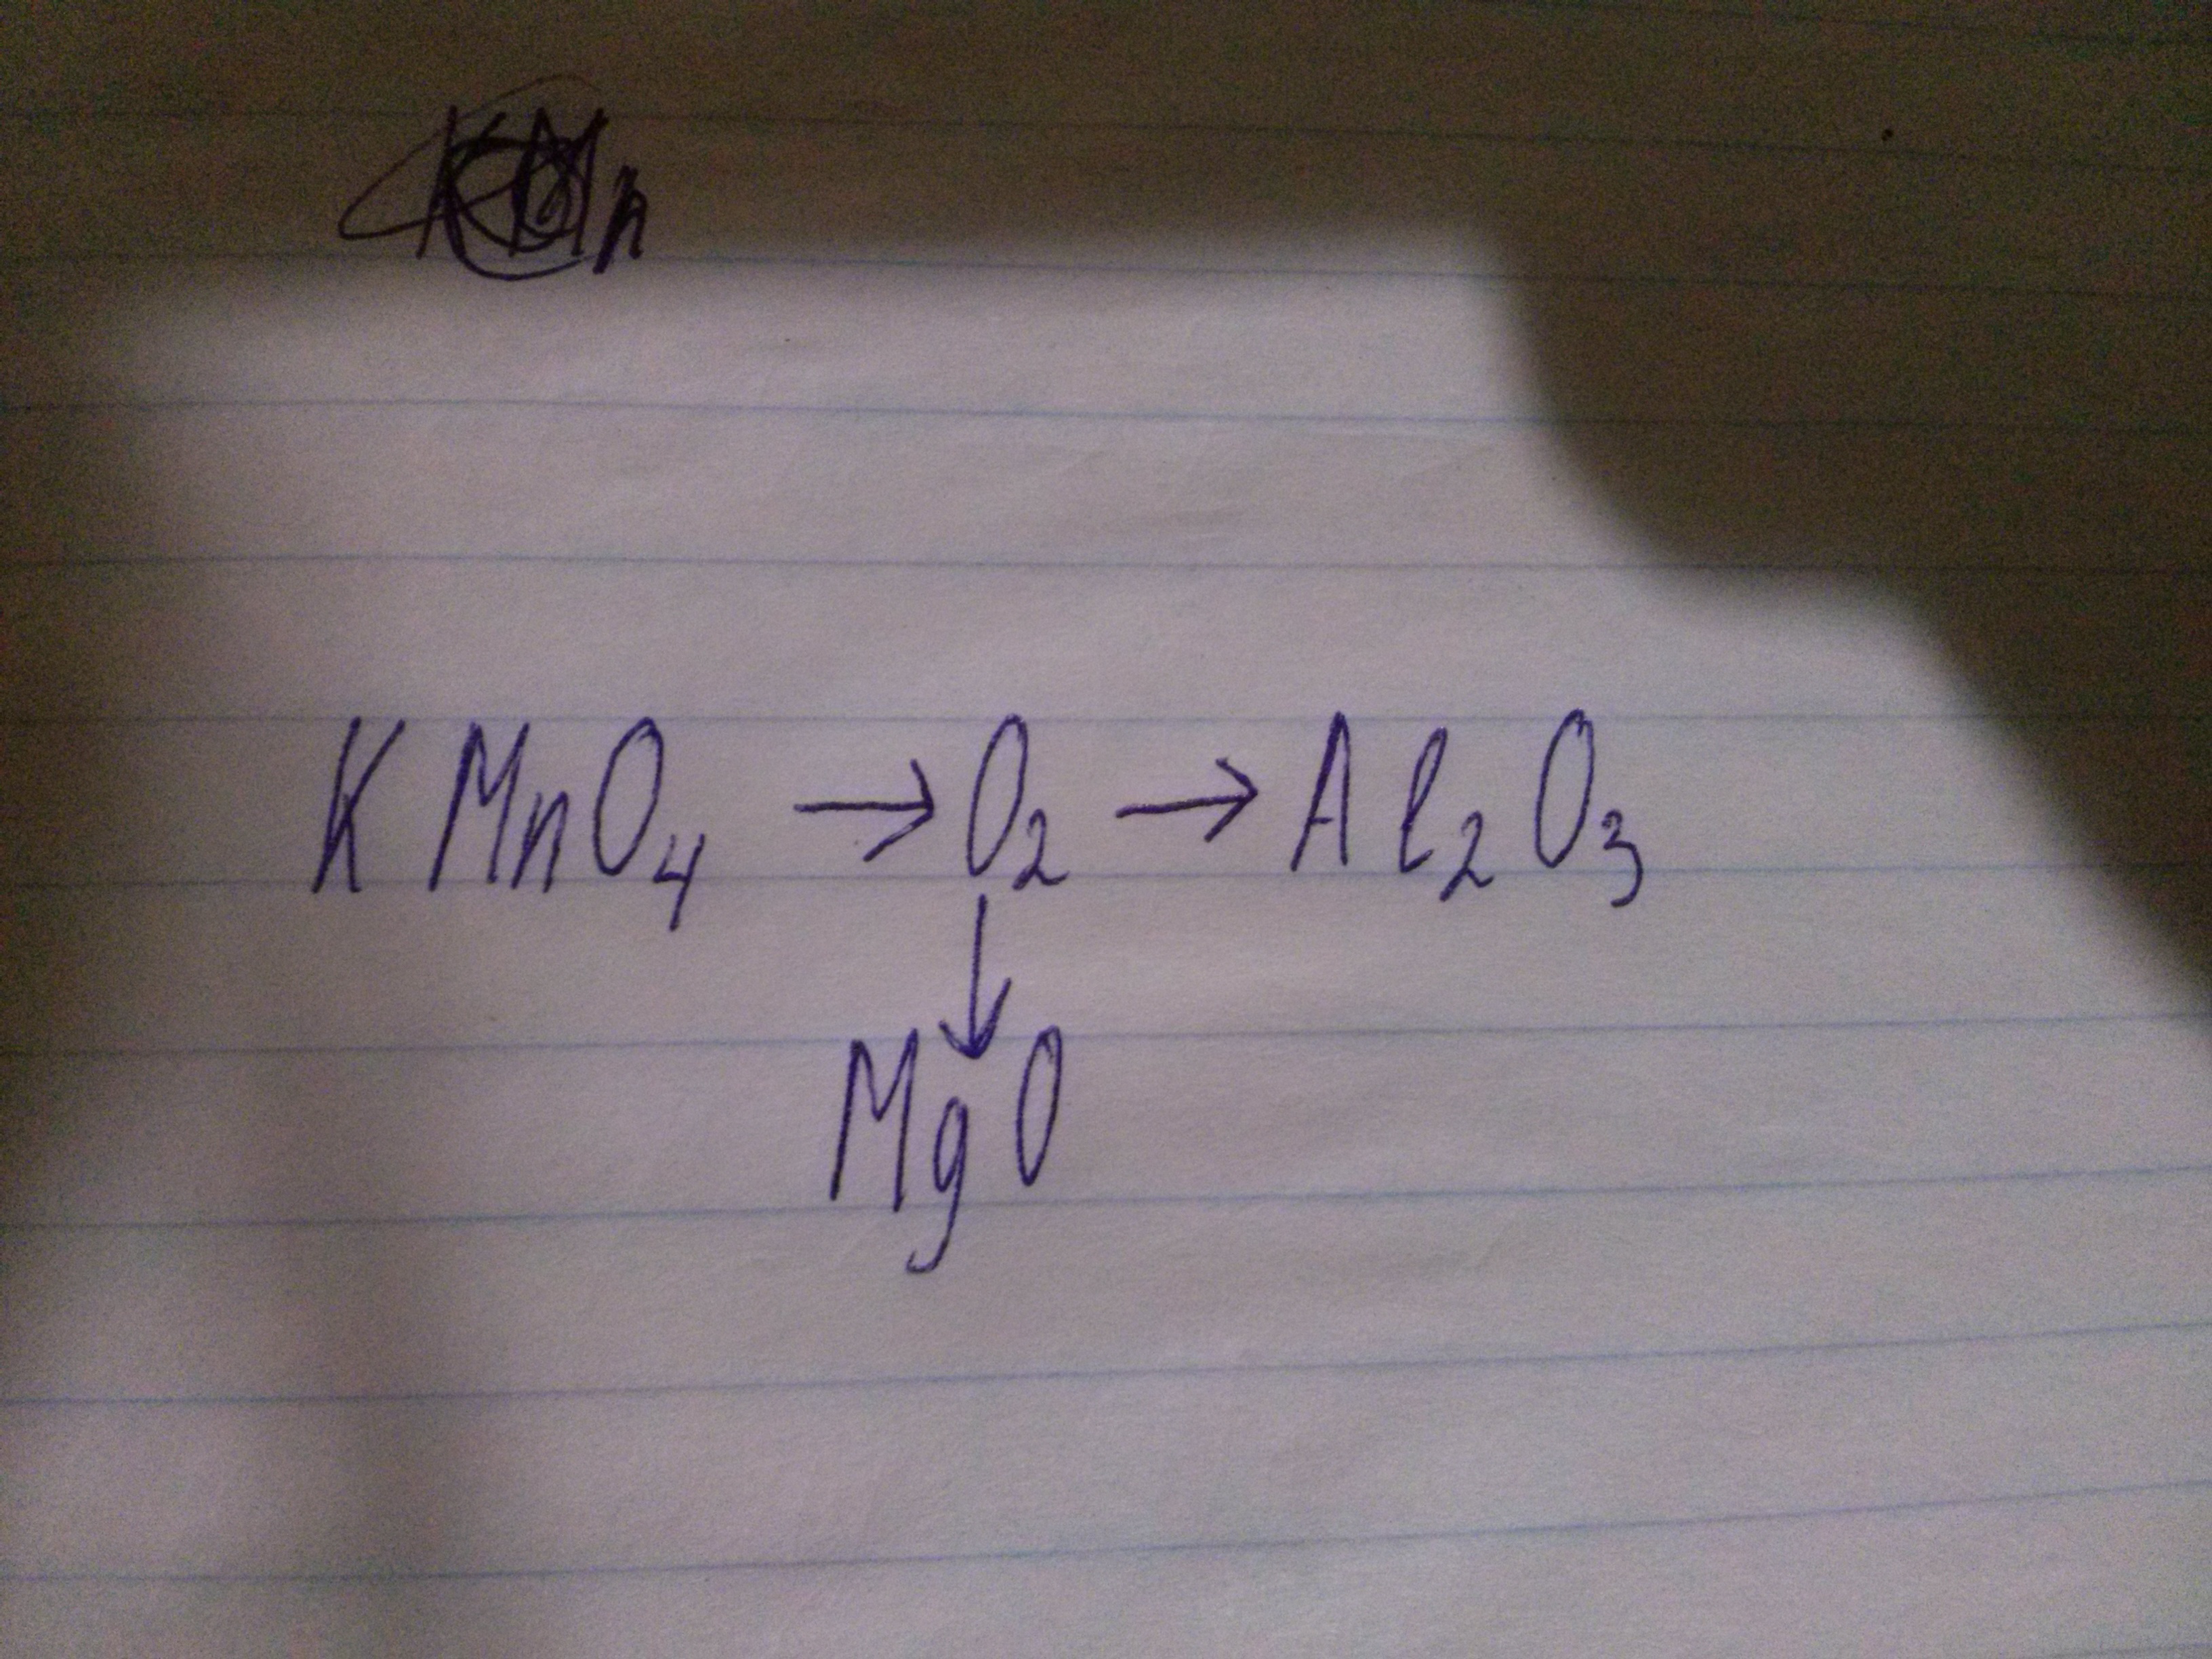 KMnO₄ → O₂ → Al₂O₃
↓
MgO